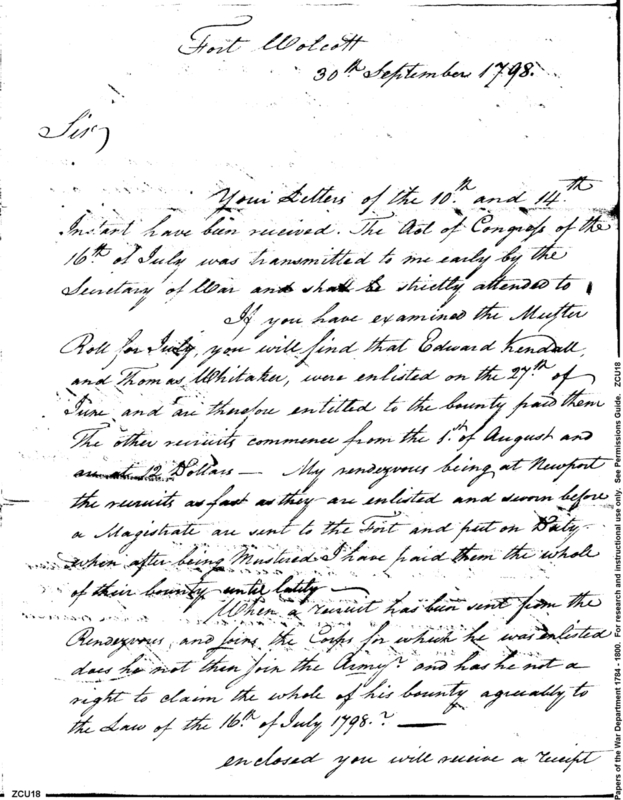 Fort Wolcott
30th September 1798.
Sir,
Your Letters of the 10th. and 14th.
Instant have been received. The Act of Congress of the
16th of July was transmitted to me early by the
Secretary of War and shall be strictly attended to
If you have examined the Muster
Roll for July, you will find that Edward Kendall,
and Thomas Whitaker, were enlisted on the 27th of
June and are therefore entitled to the bounty paid them
The other recruits commence from the 1st of August and
are at 12 Dollars — My rendezvous being at Newport
the recruits as fast as they are enlisted and sworn before
a Magistrate are sent to the Fort and put on Duty
when after being Mustered I have paid them the whole
of their bounty until lately —
When a recruit has been sent from the
Rendezvous, and joins the Corps for which he was enlisted
does he not then join the Army? and has he not a
right to claim the whole of his bounty agreeably to
the Law of the 16th. of July 1798.? —
enclosed you will receive a receipt
ZCU18
Papers of the War Department 1784 - 1800. For research and instructional use only. See Permissions Guide. ZCU18